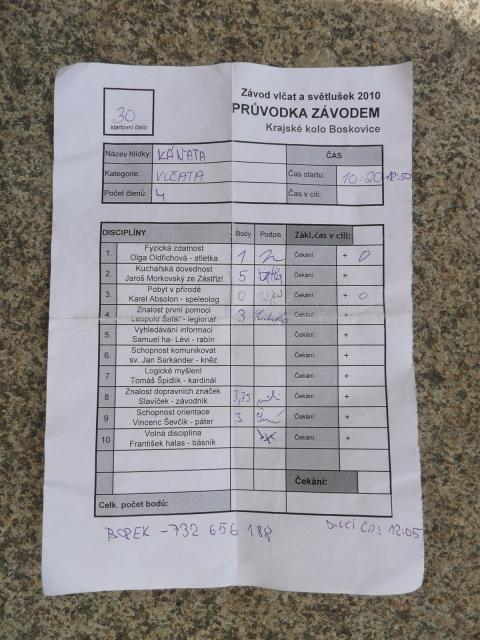 Závod vlčat a světlušek 2010
PRŮVODKA ZÁVODEM
Krajské kolo Boskovice
30
startovní číslo
Název hlídky: KÁŇATA
ČAS
Kategorie: VLČATA
Čas startu: 10:20 12:50
Počet členů: 4
Čas v cíli:
DISCIPLÍNY Body Podpis Zákl.čas v cíli:
1. Fyzická zdatnost
Olga Oldřichová - atletka 1 Čekání + 0
2. Kuchařská dovednost
Jaroš Morkovský ze Zástřizl 5 Čekání: +
3. Pobyt v přírodě
Karel Absolon - speleolog 0 Čekání: + 0
4. Znalost první pomoci
Leopold Šafář - legionář 3 Čekání: +
5. Vyhledávání informací
Samuel ha- Lévi - rabín Čekání: +
6. Schopnost komunikovat
sv. Jan Sarkander - kněz Čekání: +
7 Logické myšlení
Tomáš Špidlík - kardinál Čekání: +
8 Znalost dopravních značek
Slavíček - závodník 3,75 Čekání +
9 Schopnost orientace
Vincenc Ševčík - páter 3 Čekání +
10 Volná disciplína
František halas - básník Čekání: +
Čekání:
Celk. počet bodů:
BOREK - 732 656 188
DÍLČÍ ČAS 12:05